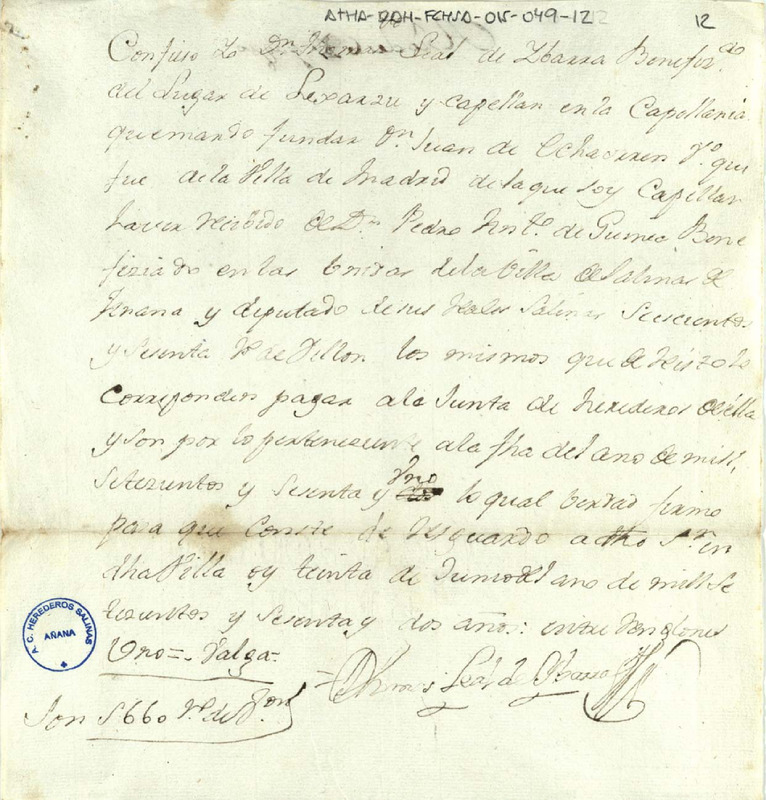 ATHA-DAH-FCHSA-015-049-12
12
Confieso Yo Dn. Thomas Leal de Ybarra Benefiz.do
del Lugar de Lexarzu y capellan en la Capellania
que mando fundar Dn. Juan de Echaurren Vº. que
fue de la Villa de Madrid de la que soy Capellan
haver rezivido de Dn. Pedro Antº. de Guinea Bene
fiziado en las Unidas de la Villa de Salinas de
Anana y diputado de sus Reales Salinas Seiscientos
y Sesenta Rs. de Vellon los mismos que
corresponden pagar a la Junta de herederos de ella
y son por lo perteneziente a la fha del ano de mill,
Setezientos y Sesenta y Vno dos lo qual verdad firmo
para que Conste de resguardo a dho Sr. en
dha Villa oy treinta de Junio del ano de mill Se
tezientos y Sesenta y dos años: entre Renglones
Vno=Valga-
=Dn Thomas Leal de Ybarra
Son 660 Rs. de Von
A. C. HEREDEROS SALINAS
AÑANA